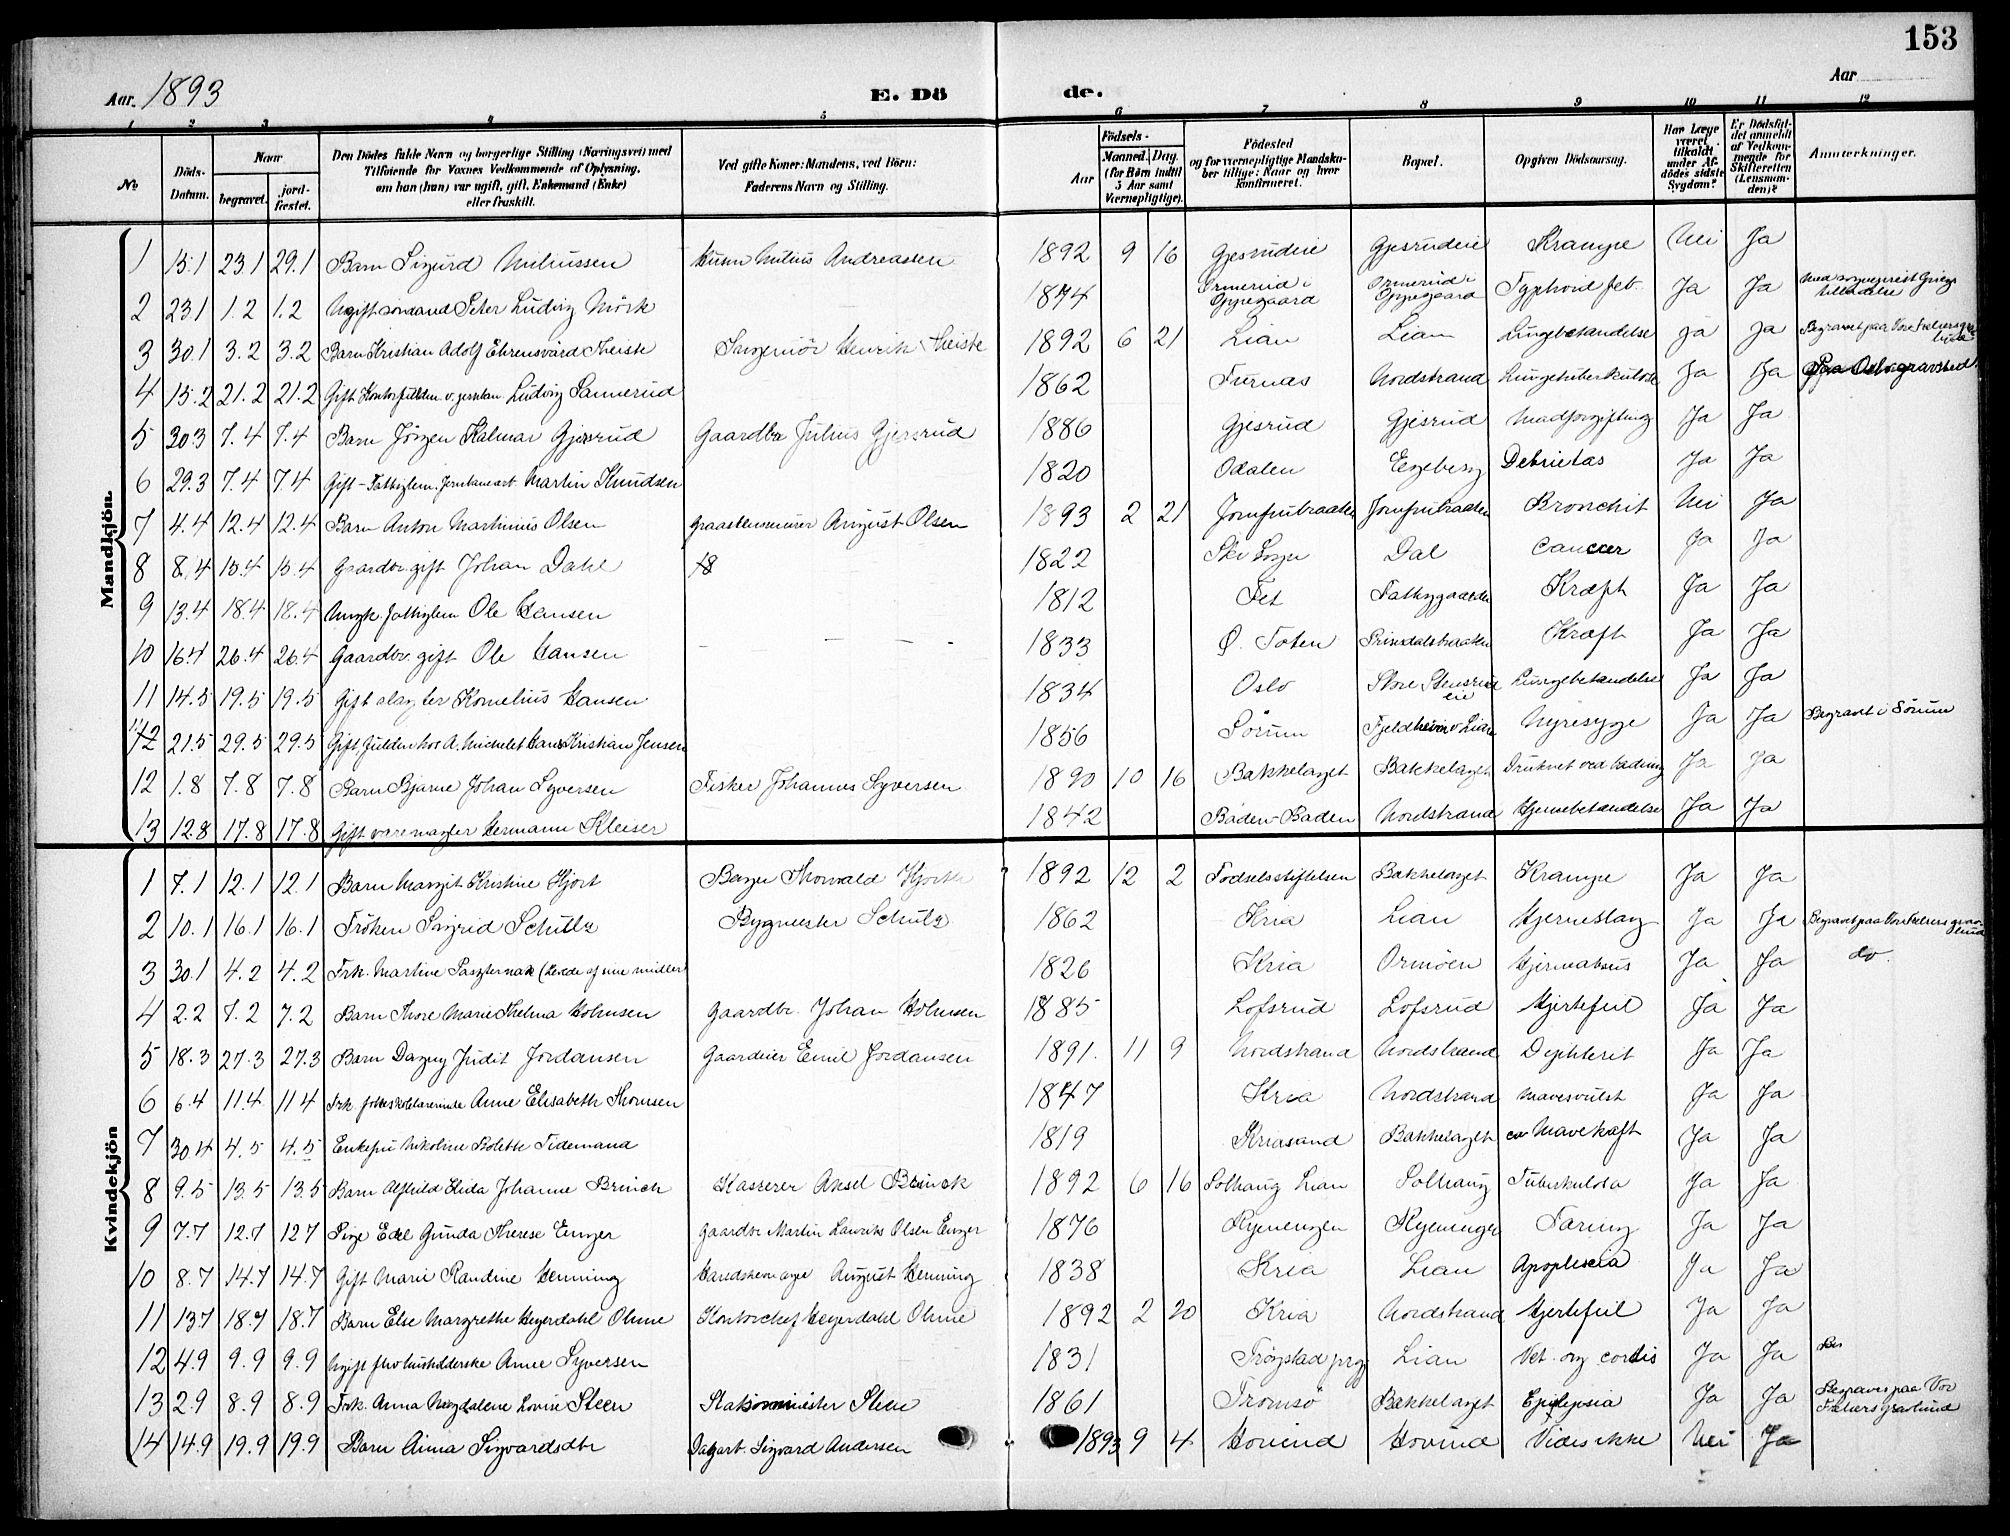 153
Aar. 1893
E. Dö
de.
Aar
1 2 3 4 5 6 7 8 9 10 11 12
No
Döds-Datum.
Naar
begravet.
jord-fæstet.
Den Dödes fulde Navn og borgerlige Stilling (Næringsvei) med
Tilføiende for Voxnes Vedkommende af Oplysning,
om han (hun) var ugift, gift, Enkemand (Enke)
eller fraskilt.
Ved gifte Koner: Mandens, ved Börn:
Faderens Navn og Stilling.
Födsels-
Aar
Maaned. Dag.
(for Børn indtil
5 Aar samt
Værnepligtige).
Födested
og for værnepligtige Mandska-
ber tillige: Naar og hvor
konfirmeret.
Bopæl.
Opgiven Dödsaarsag.
Har Læge
været
tilkaldt
under Af-
dödes sidste
Sygdom?
Er Dödsfal-
det anmeldt
af Vedkom-
mende for
Skifteretten
(Lensman-
den)?
Anmærkninger.
Mandkjön.
1 15.1 23.1 29.1 Barn Sigurd Miliussen Husm Milius Andreassen 1892 9 16 Gjesrudeie Gjesrudeie Krampe Nei Ja
2 23.1 1.2 1.2 Ugift Peter Ludvig Mörk 1874 Ormerud i Oppegaard Ormerud i Oppegaard Typhoid feb. Ja Ja Med sogneprest Griegs tilladelse
3 30.1 3.2 3.2 Barn Kristian Adolf Ehrensvärd Theiste Ingeniör Henrik Theiste 1892 6 21 Lian Lian Lungebetændelse Ja Ja Begravet paa Vor Frelsers gravlund
4 15.2 21.2 21.2 Gift Ludvig Sannerud 1862 Furnas Nordstrand Lungetuberkulose Ja Ja Paa Oslo gravsted.
5 30.3 7.4 7.4 Barn Jörgen Halmar Gjersrud Gaardbr Julius Gjersrud 1886 Gjesrud Gjesrud Madforgiftning Ja Ja
6 29.3 7.4 7.4 Gift - Fattiglem. Martin Knudsen 1820 Odalen Engeberg Debrietas Ja Ja
7 4.4 12.4 12.4 Barn Anton Martinius Olsen Graastensmurer August Olsen 1893 2 21 Jomfrubraaten Jomfrubraaten Bronchit Nei Ja
8 8.4 15.4 15.4 Gaardbr. gift Johan Dahl 18 1822 Ski Sogn Dal Cancer Ja Ja
9 13.4 18.4 18.4 Ungk. fattiglem Ole Hansen 1812 Fet Fattiggaarden Kræft Ja Ja
10 16.4 26.4 26.4 Gaardbr. gift Ole Hansen - - - 1833 Ø. Toten Prinsdalsbraaten Kræft Ja Ja
11 14.5 19.5 19.5 Gift slagter Kornelius Hansen 1834 Oslo Store Stensrud eie Lungebetændelse Ja Ja
12 21.5 29.5 29.5 Gift, fuldm hos A. Michelet Hans Kristian Jensen 1856 Sörum Fjeldheim v Lian Nyresyge Ja Ja Begravet i Sörum
12 1.8 7.8 7.8 Barn Bjarne Johan Syversen Fisker Johannes Syversen 1890 10 16 Bækkelaget Bækkelaget Druknet ved badning Ja Ja
13 12.8 17.8 17.8 Gift Hermann Kleiser 1842 Baden-Baden Nordstrand Hjernebetændelse Ja Ja
Kvindekjön
1 7.1 12.1 12.1 Barn Margit Kristine Hjort Bager Thorvald Hjorth 1892 12 2 Födselsstiftelsen Bækkelaget Krampe Ja Ja
2 10.1 16.1 16.1 Fröken Ingrid Schultz Bygmester Schultz 1862 Kria Lian Hjerneslag Ja Ja Begravet paa Vor Frelsers gravlund
3 30.1 4.2 4.2 Frk. Martine Paszternak (Levde af sine midler) 1826 Kria Ormöen Ja Ja do.
4 2.2 7.2 7.2 Barn Thore Marie Thelma Holmsen Gaardbr. Johan Holmsen 1885 Lofsrud Lofsrud Hjertefeil Ja Ja
5 18.3 27.3 27.3 Barn Dagny Judit Jordansen Gaardeier Emil Jordansen 1891. 11 9 Nordstrand Nordstrand Diphterit Ja Ja
6 6.4 11.4 11.4 Frk. folkeskolelærerinde Anne Elisabeth Thomsen 1847 Kria Nordstrand Mavesvulst Ja Ja
7 30.4 4.5 4.5 Enkefru Nikoline Bolette Tidemand 1819 Kriasand Bækkelaget Mavekræft Ja Ja
8 9.5 13.5 13.5 Barn Alfhild Hida Johanne Brinck Kasserer Aksel Brinck 1892 6 16 Solhaug Lian Solhaug Tuberkulosa Ja Ja
9 7.7 12.7 12.7 Pige Edel Gunda Therese Enger Gaardbr Martin Laurits Olsen Enger 1876 Ryenengen Ryenengen Tæring Ja Ja
10 8.7 14.7 14.7 Gift Marie Randine Henning August Henning 1838 Kria Lian Apoplexia Ja Ja
11 13.7 18.7 18.7 Barn Else Margrethe Heyerdahl Ohme Kontorchef Heyerdahl Ohme 1892 2 20 Kria Nordstrand Hjertefeil Ja Ja
12 4.9 9.9 9.9 Ugift fhv husholderske Anne Syversen 1831 Trögstad prg Lian Vet. org cordis Ja Ja
13 2.9 8.9 8.9 Frk. Anna Magdalene Lovise Steen Stationsmester Steen 1861 Tromsö Bækkelaget Epilepsia Ja Ja Begraves paa Vor Frelsers gravlund
14 14.9 19.9 19.9 Barn Aina Sigvardsdtr Dagarb. Sigvard Andersen 1893 9 4 Hovind Hovind Vides ikke Nei Ja